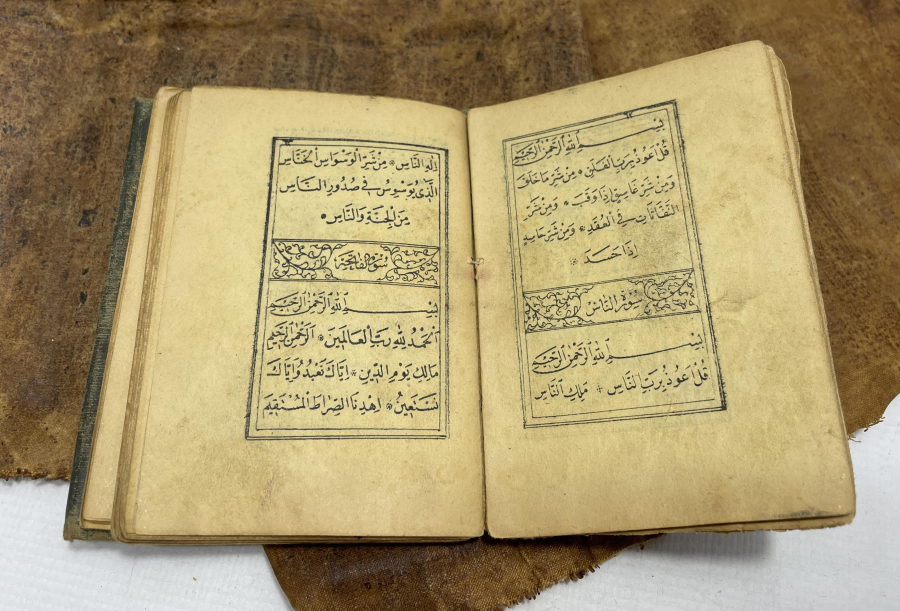 بِسْمِ ٱللّٰهِ ٱلرَّحْمٰنِ ٱلرَّحِيْمِ
قُلْ اَعُوذُ بِرَبِّ الْفَلَقِ ٭ مِنْ شَرِّ مَا خَلَقَ
وَمِنْ شَرِّ غَاسِقٍ اِذَا وَقَبَ ٭ وَمِنْ شَرِّ
النَّفَّاثَاتِ فِي الْعُقَدِ ٭ وَمِنْ شَرِّ حَاسِدٍ
اِذَا حَسَدَ ٭
سُورَةُ النَّاسِ
بِسْمِ ٱللّٰهِ ٱلرَّحْمٰنِ ٱلرَّحِيْمِ
قُلْ اَعُوذُ بِرَبِّ النَّاسِ ٭ مَلِكِ النَّاسِ
اِلٰهِ النَّاسِ ٭ مِنْ شَرِّ الْوَسْوَاسِ الْخَنَّاسِ
الَّذِي يُوَسْوِسُ فِي صُدُورِ النَّاسِ
مِنَ الْجِنَّةِ وَالنَّاسِ ٭
سُورَةُ الْفَاتِحَةِ
بِسْمِ ٱللّٰهِ ٱلرَّحْمٰنِ ٱلرَّحِيْمِ
اَلْحَمْدُ لِلّٰهِ رَبِّ الْعَالَمِينَ ٭ اَلرَّحْمٰنِ الرَّحِيمِ
مَالِكِ يَوْمِ الدِّينِ ٭ اِيَّاكَ نَعْبُدُ وَاِيَّاكَ
نَسْتَعِينُ ٭ اِهْدِنَا الصِّرَاطَ الْمُسْتَقِيمَ